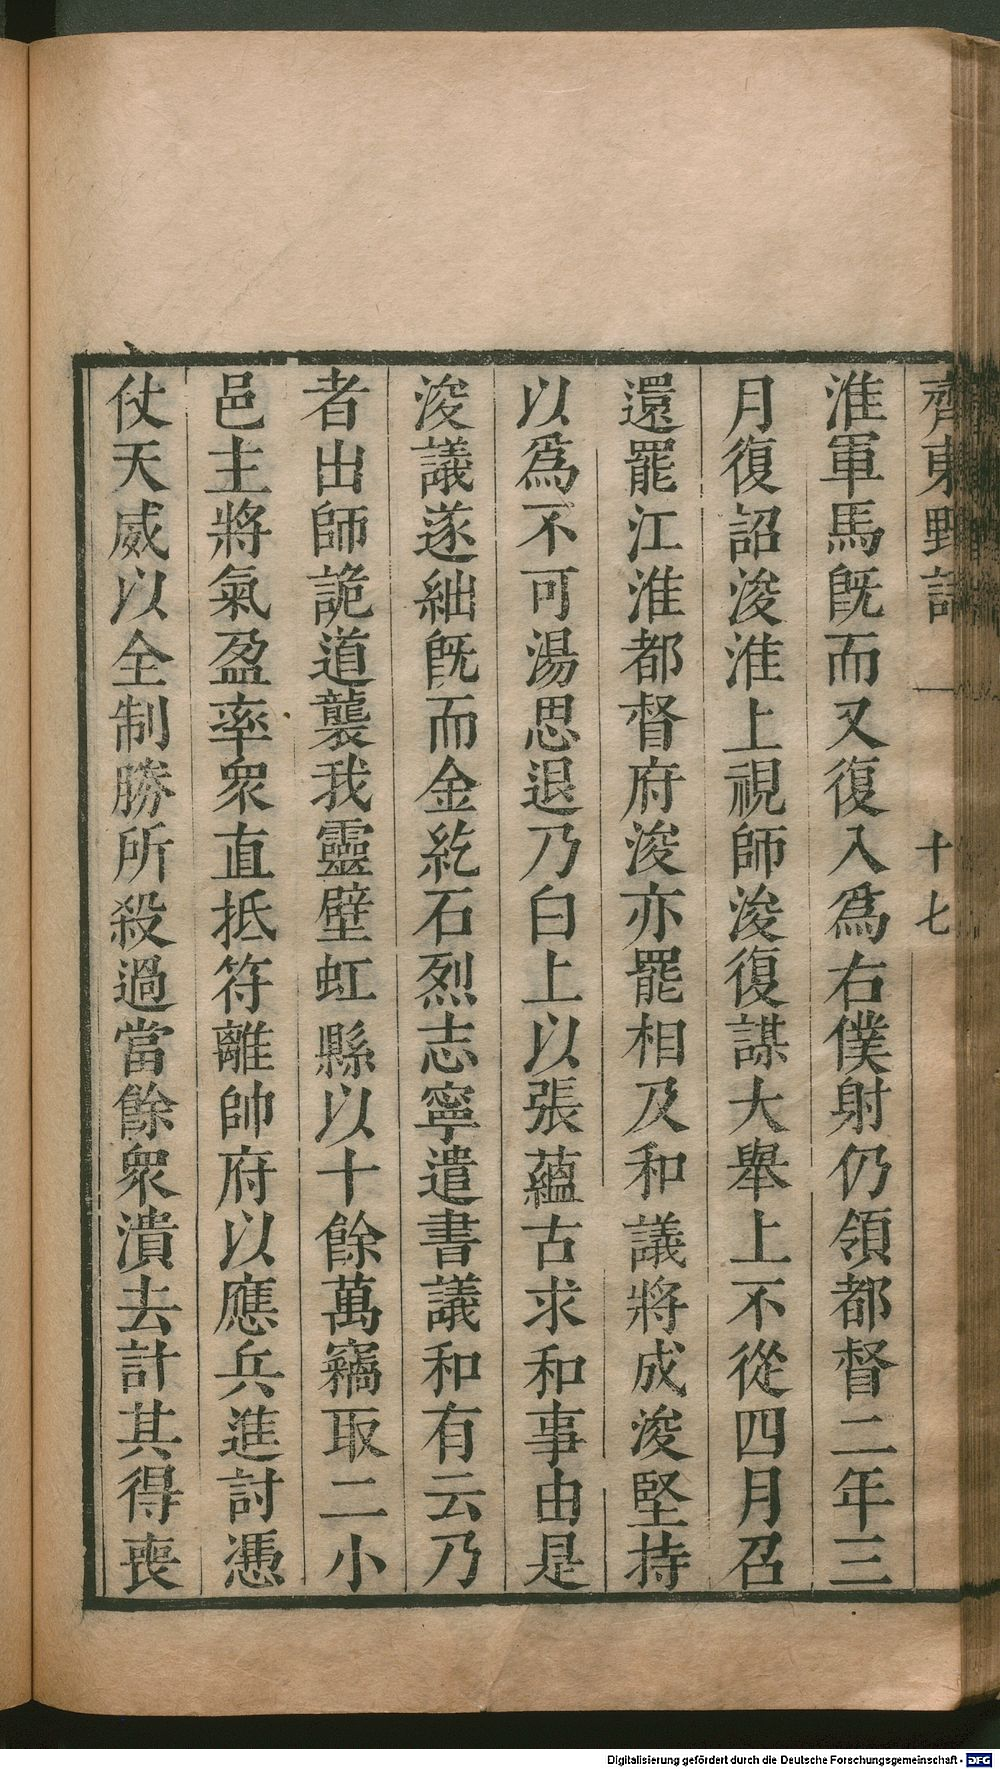 齊東野語
一
十七
淮軍馬旣而又復入爲右僕射仍領都督二年三
月復詔浚淮上視師浚復謀大舉上不從四月召
還罷江淮都督府浚亦罷相及和議將成浚堅持
以爲不可湯思退乃白上以張蘊古求和事由是
浚議遂絀旣而金紇石烈志寧遣書議和有云乃
者出師詭道襲我靈壁虹縣以十餘萬竊取二小
邑主將氣盈率衆直抵符離帥府以應兵進討憑
仗天威以全制勝所殺過當餘衆潰去計其得喪
Digitalisierung gefördert durch die Deutsche Forschungsgemeinschaft - DFG